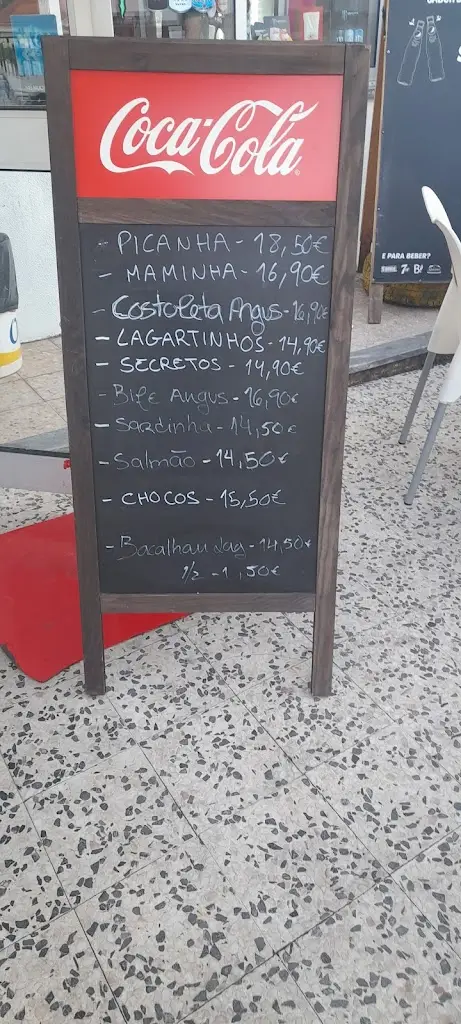 Coca-Cola
- PICANHA - 18,50€
- MAMINHA - 16,90€
- Costoleta Angus - 16,90€
- LAGARTINHOS - 14,90€
- SECRETOS - 14,90€
- Bife Angus - 16,90€
- Sardinha - 14,50€
- Salmão - 14,50€
- CHOCOS - 15,50€
- Bacalhau Lag - 14,50€
1/2 - 1 ,50€
E PARA BEBER?